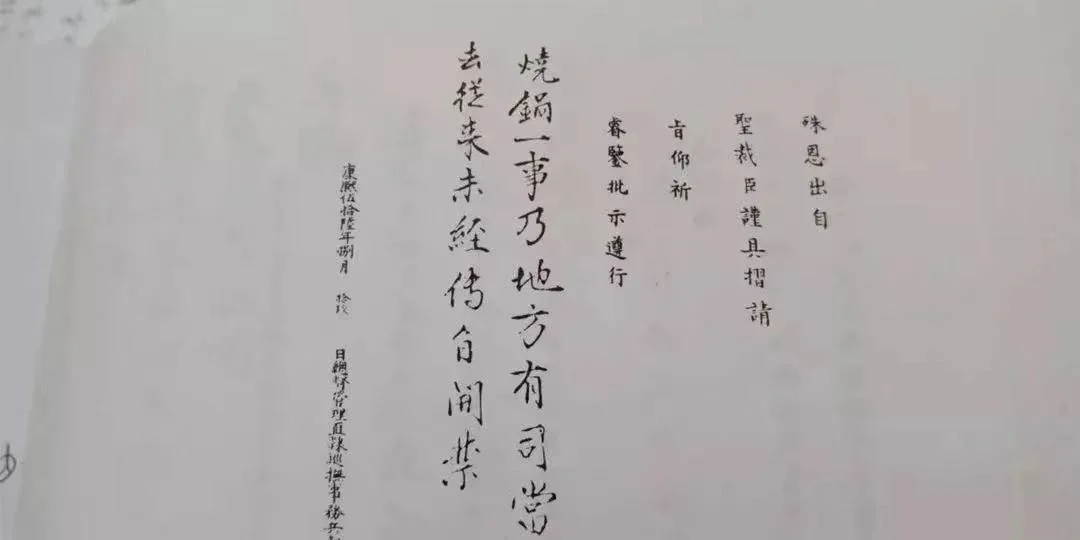 硃恩出自
聖裁臣謹具摺請
旨仰祈
睿鑒批示遵行
燒鍋一事乃地方有司當
去從来未經传旨開禁
康熙伍拾陸年捌月
日總督管理直隸巡撫事務兵